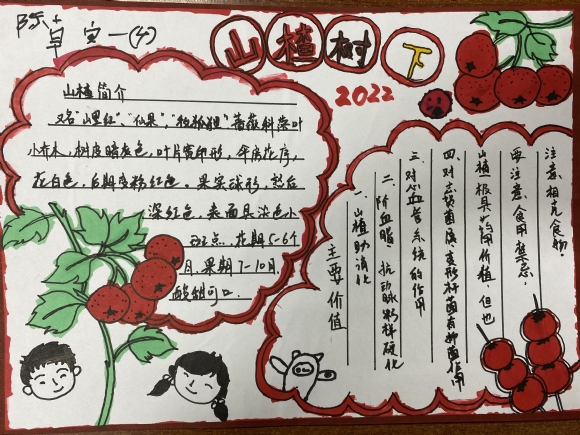 山楂树下
2022
山楂简介
又名"山里红"、"仙果"、蔷薇科落叶
小乔木，树皮暗灰色，叶片宽卵形，伞房花序，
花白色，后期变粉红色。果实球形，熟后
深红色，表面具淡色小
斑点，花期5-6个
月，果期7-10月，
酸甜可口。
主要价值
一、山楂助消化
二、降血脂、抗动脉粥样硬化
三、对心血管系统的作用
四、对志贺菌属、变形杆菌有抑菌作用
山楂极具药用价值，但也
要注意食用禁忌，
注意相克食物。